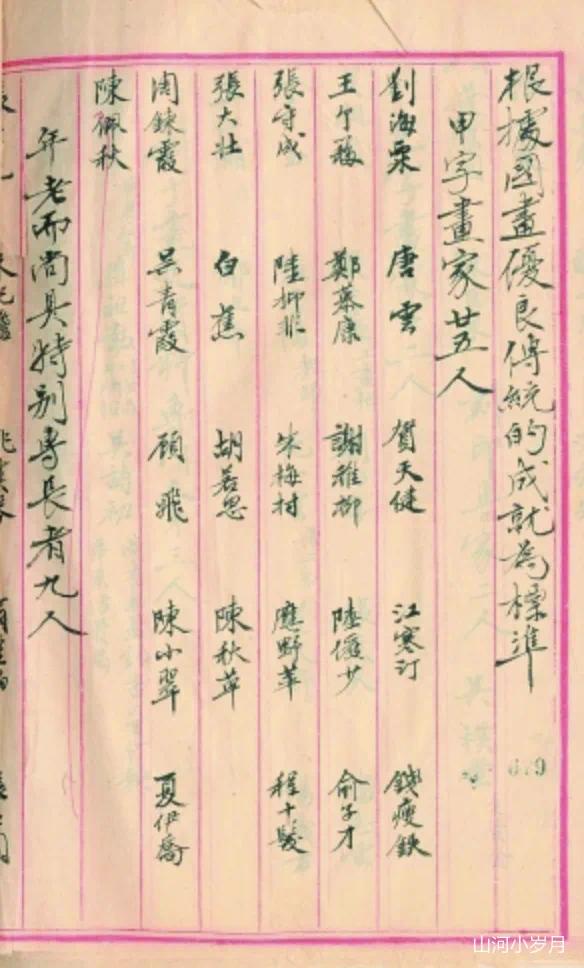 根據國畫優良傳統的成就為標準
679
甲字畫家廿五人
劉海粟 唐雲 賀天健 江寒汀 錢瘦鉄
王个簃 鄭慕康 謝稚柳 陸儼少 俞子才
張守成 陸抑非 朱梅村 應野苹 程十髮
張大壯 白蕉 胡若思 陳秋草
周鍊霞 吳青霞 顧飛 陳小翠 夏伊喬
陳佩秋
年老而尚具特別專長者九人
山河小岁月